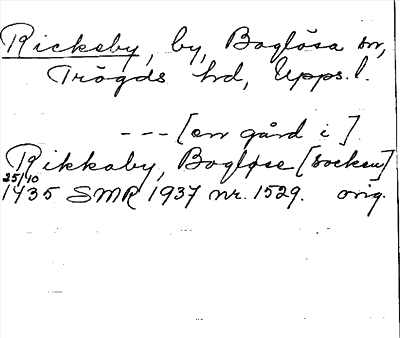 Rickeby, by, Boglösa sn,
Trögds hd, Upps. l.
--- [en gård i]
Rikkaby, Bogløse [socken]
25/10
1435 SMR 1937 nr. 1529. orig.